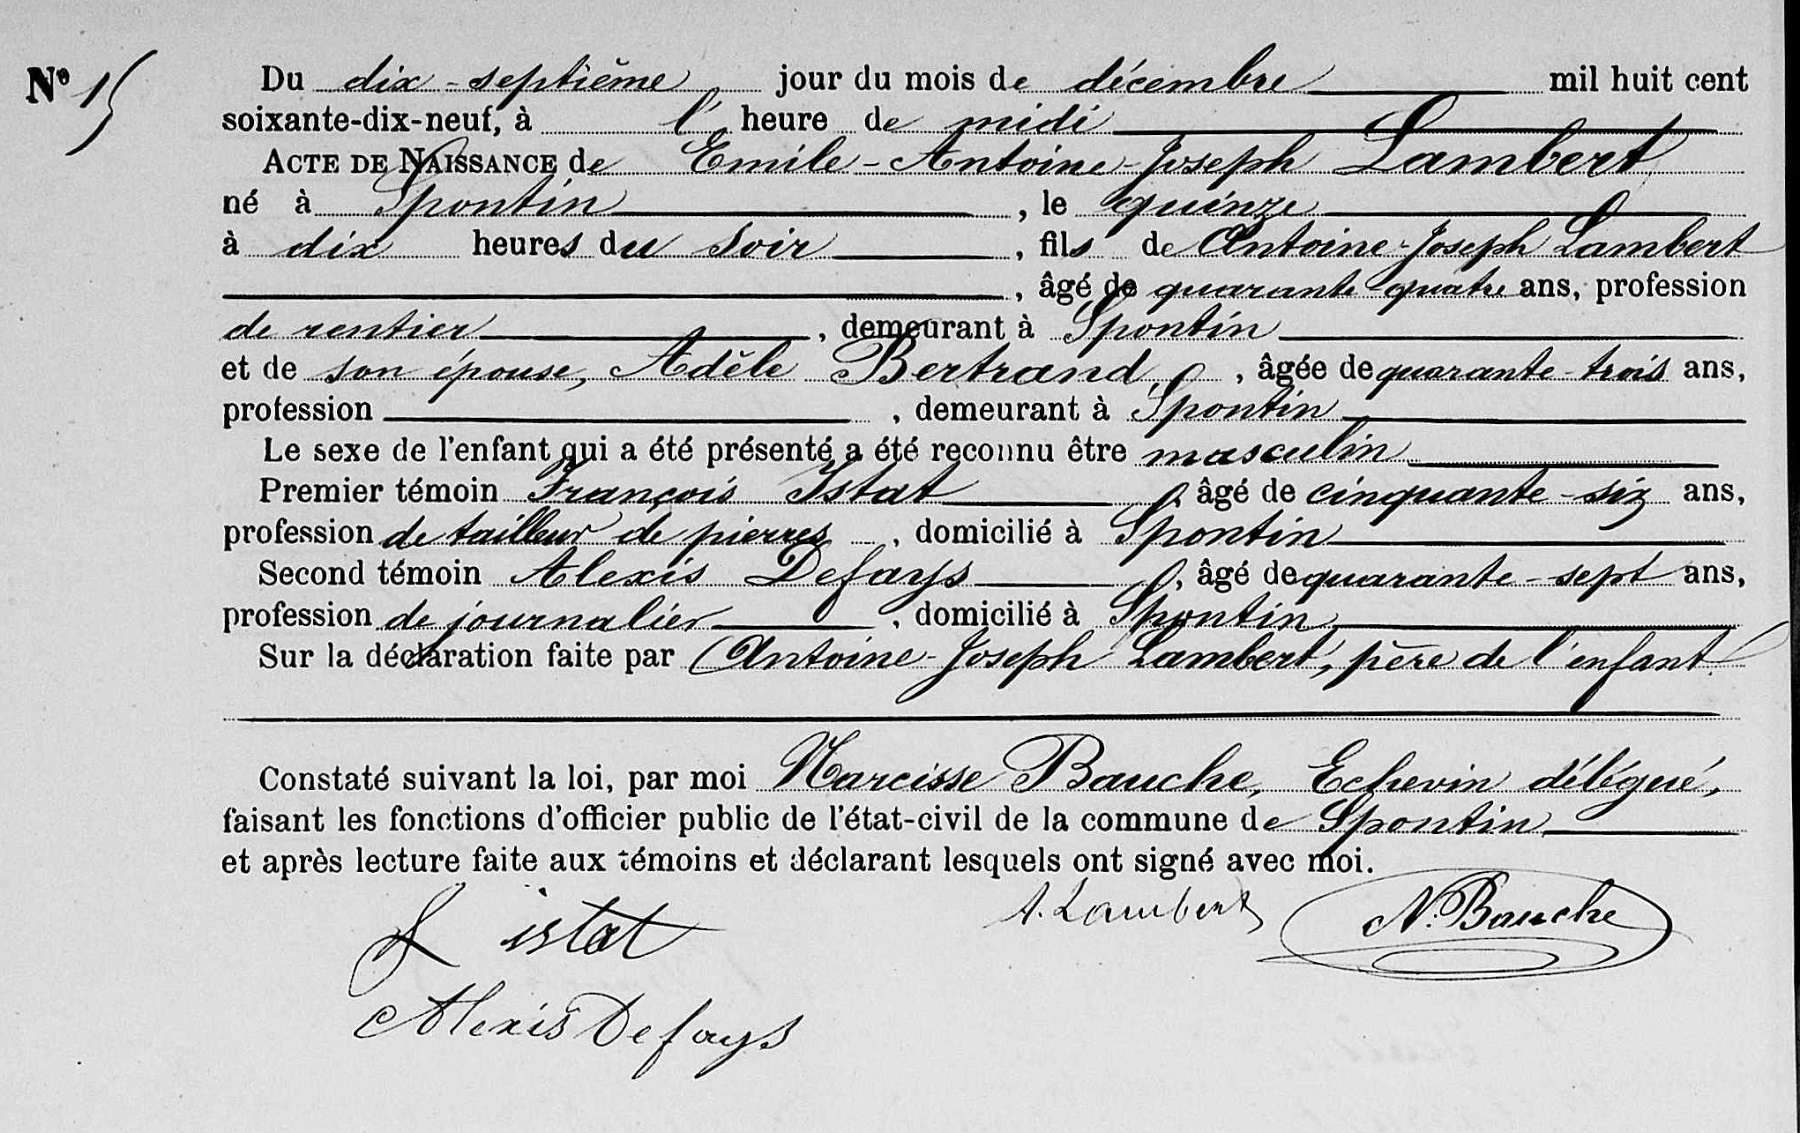 Nº 15
Du dix-septième jour du mois de décembre mil huit cent
soixante-dix-neuf, à l' heure de midi
ACTE DE NAISSANCE de Emile-Antoine-Joseph Lambert
né à Spontin, le quinze
à dix heures du soir, fils de Antoine-Joseph Lambert
, âgé de quarante quatre ans, profession
de rentier, demeurant à Spontin
et de son épouse, Adèle Bertrand, âgée de quarante-trois ans,
profession , demeurant à Spontin
Le sexe de l'enfant qui a été présenté a été reconnu être masculin
Premier témoin François Istat, âgé de cinquante-six ans,
profession de tailleur de pierres, domicilié à Spontin
Second témoin Alexis Defays, âgé de quarante-sept ans,
profession de journalier, domicilié à Spontin
Sur la déclaration faite par Antoine-Joseph Lambert, père de l'enfant.
Constaté suivant la loi, par moi Narcisse Bauche, Echevin délégué,
faisant les fonctions d'officier public de l'état-civil de la commune de Spontin
et après lecture faite aux témoins et déclarant lesquels ont signé avec moi.
istat A. Lambert N. Bauche
Alexis Defays